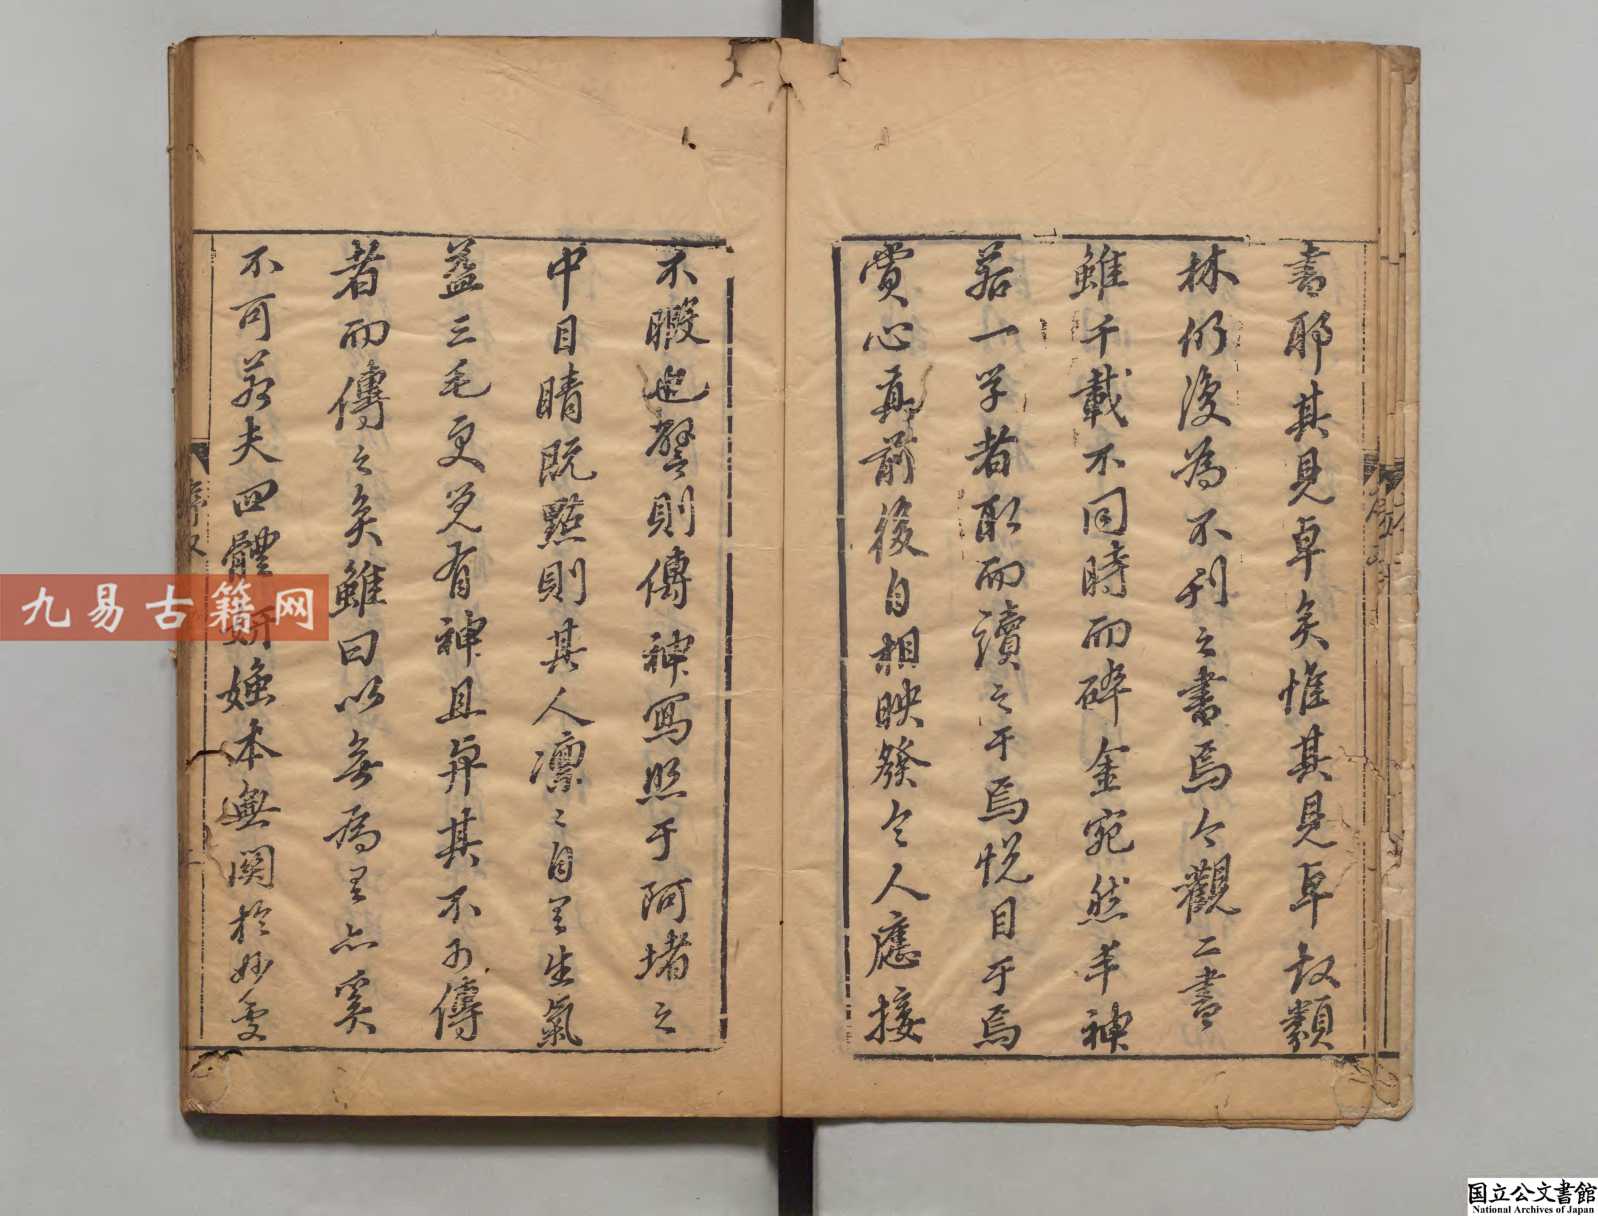 書耶其見卓矣惟其見卓故類
林仍復為不刊之書焉今觀二書
雖千載不同時而碎金宛然丰神
若一学者取而讀之于焉悅目于焉
賞心真前後自相映發令人應接
不暇也譬則傳神寫照于阿堵之
中目睛既點則其人凛〻自是生氣
益三毛更覺有神且并其不可傳
者而傳之矣雖曰以無為有亦奚
不可若夫四體妍媸本無關於妙處
九易古籍网
国立公文書館
National Archives of Japan